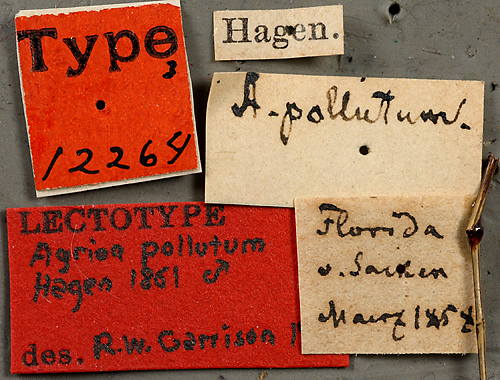 Type
3
12264
Hagen.
A. pollutum.
LECTOTYPE
Agrion pollutum
Hagen 1861 ♂
des. R.W. Garrison
Florida
v. Sacken
März 1858.